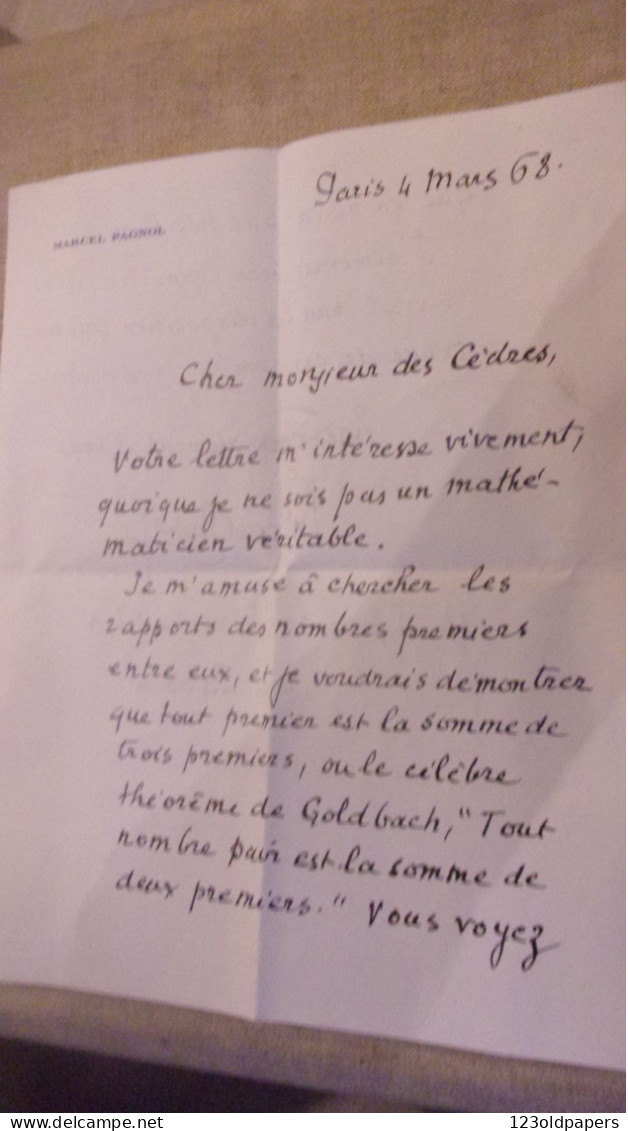 Paris 4 Mars 68.
MARCEL PAGNOL
Cher monsieur des Cèdres,
Votre lettre m'intéresse vivement,
quoique je ne sois pas un mathé-
maticien véritable.
Je m'amuse à chercher les
rapports des nombres premiers
entre eux, et je voudrais démontrer
que tout premier est la somme de
trois premiers, ou le célèbre
théorème de Goldbach, "Tout
nombre pair est la somme de
deux premiers." Vous voyez
delcampe.net
123oldpapers